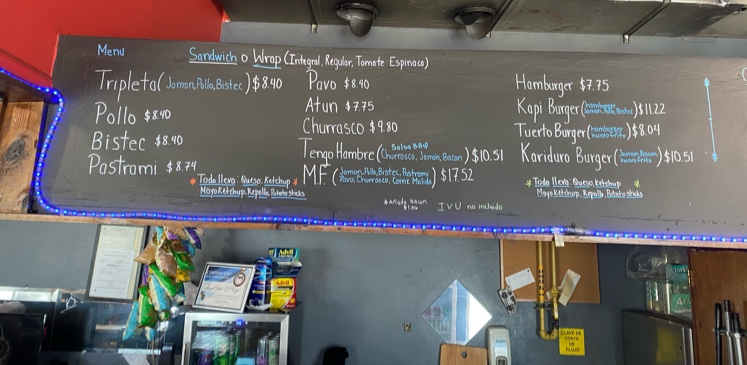 Menu
Sandwich o Wrap (Integral, Regular, Tomate Espinaca)
Tripleta (Jamon, Pollo, Bistec) $8.40
Pollo $8.40
Bistec $8.40
Pastrami $8.74
* Todo lleva: Queso, Ketchup *
MayoKetchup, Repollo, Potato sticks
Pavo $8.40
Atun $7.75
Churrasco $9.80
Tengo Hambre (Salsa BBQ
Churrasco, Jamon, Bacon) $10.51
M.F. (Jamon, Pollo, Bistec, Pastrami
Pavo, Churrasco, Carne Molida) $17.52
Bacon
IVU no incluido
Hamburger $7.75
Kapi Burger (hamburger
Jamon, Pollo, Bistec) $11.22
Tuerto Burger (hamburger
huevo frito) $8.04
Kariduro Burger (Jamon, Bacon
huevo frito) $10.51
* Todo lleva: Queso, Ketchup *
MayoKetchup, Repollo, Potato sticks
Advil
Advil
LLAVE DE
CORTE
DE
FLUJO